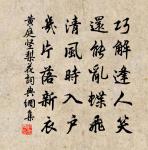 巧解逢人笑
還能亂蝶飛
清風時入戶
幾片落新衣
黃庭堅梨花詞典網集